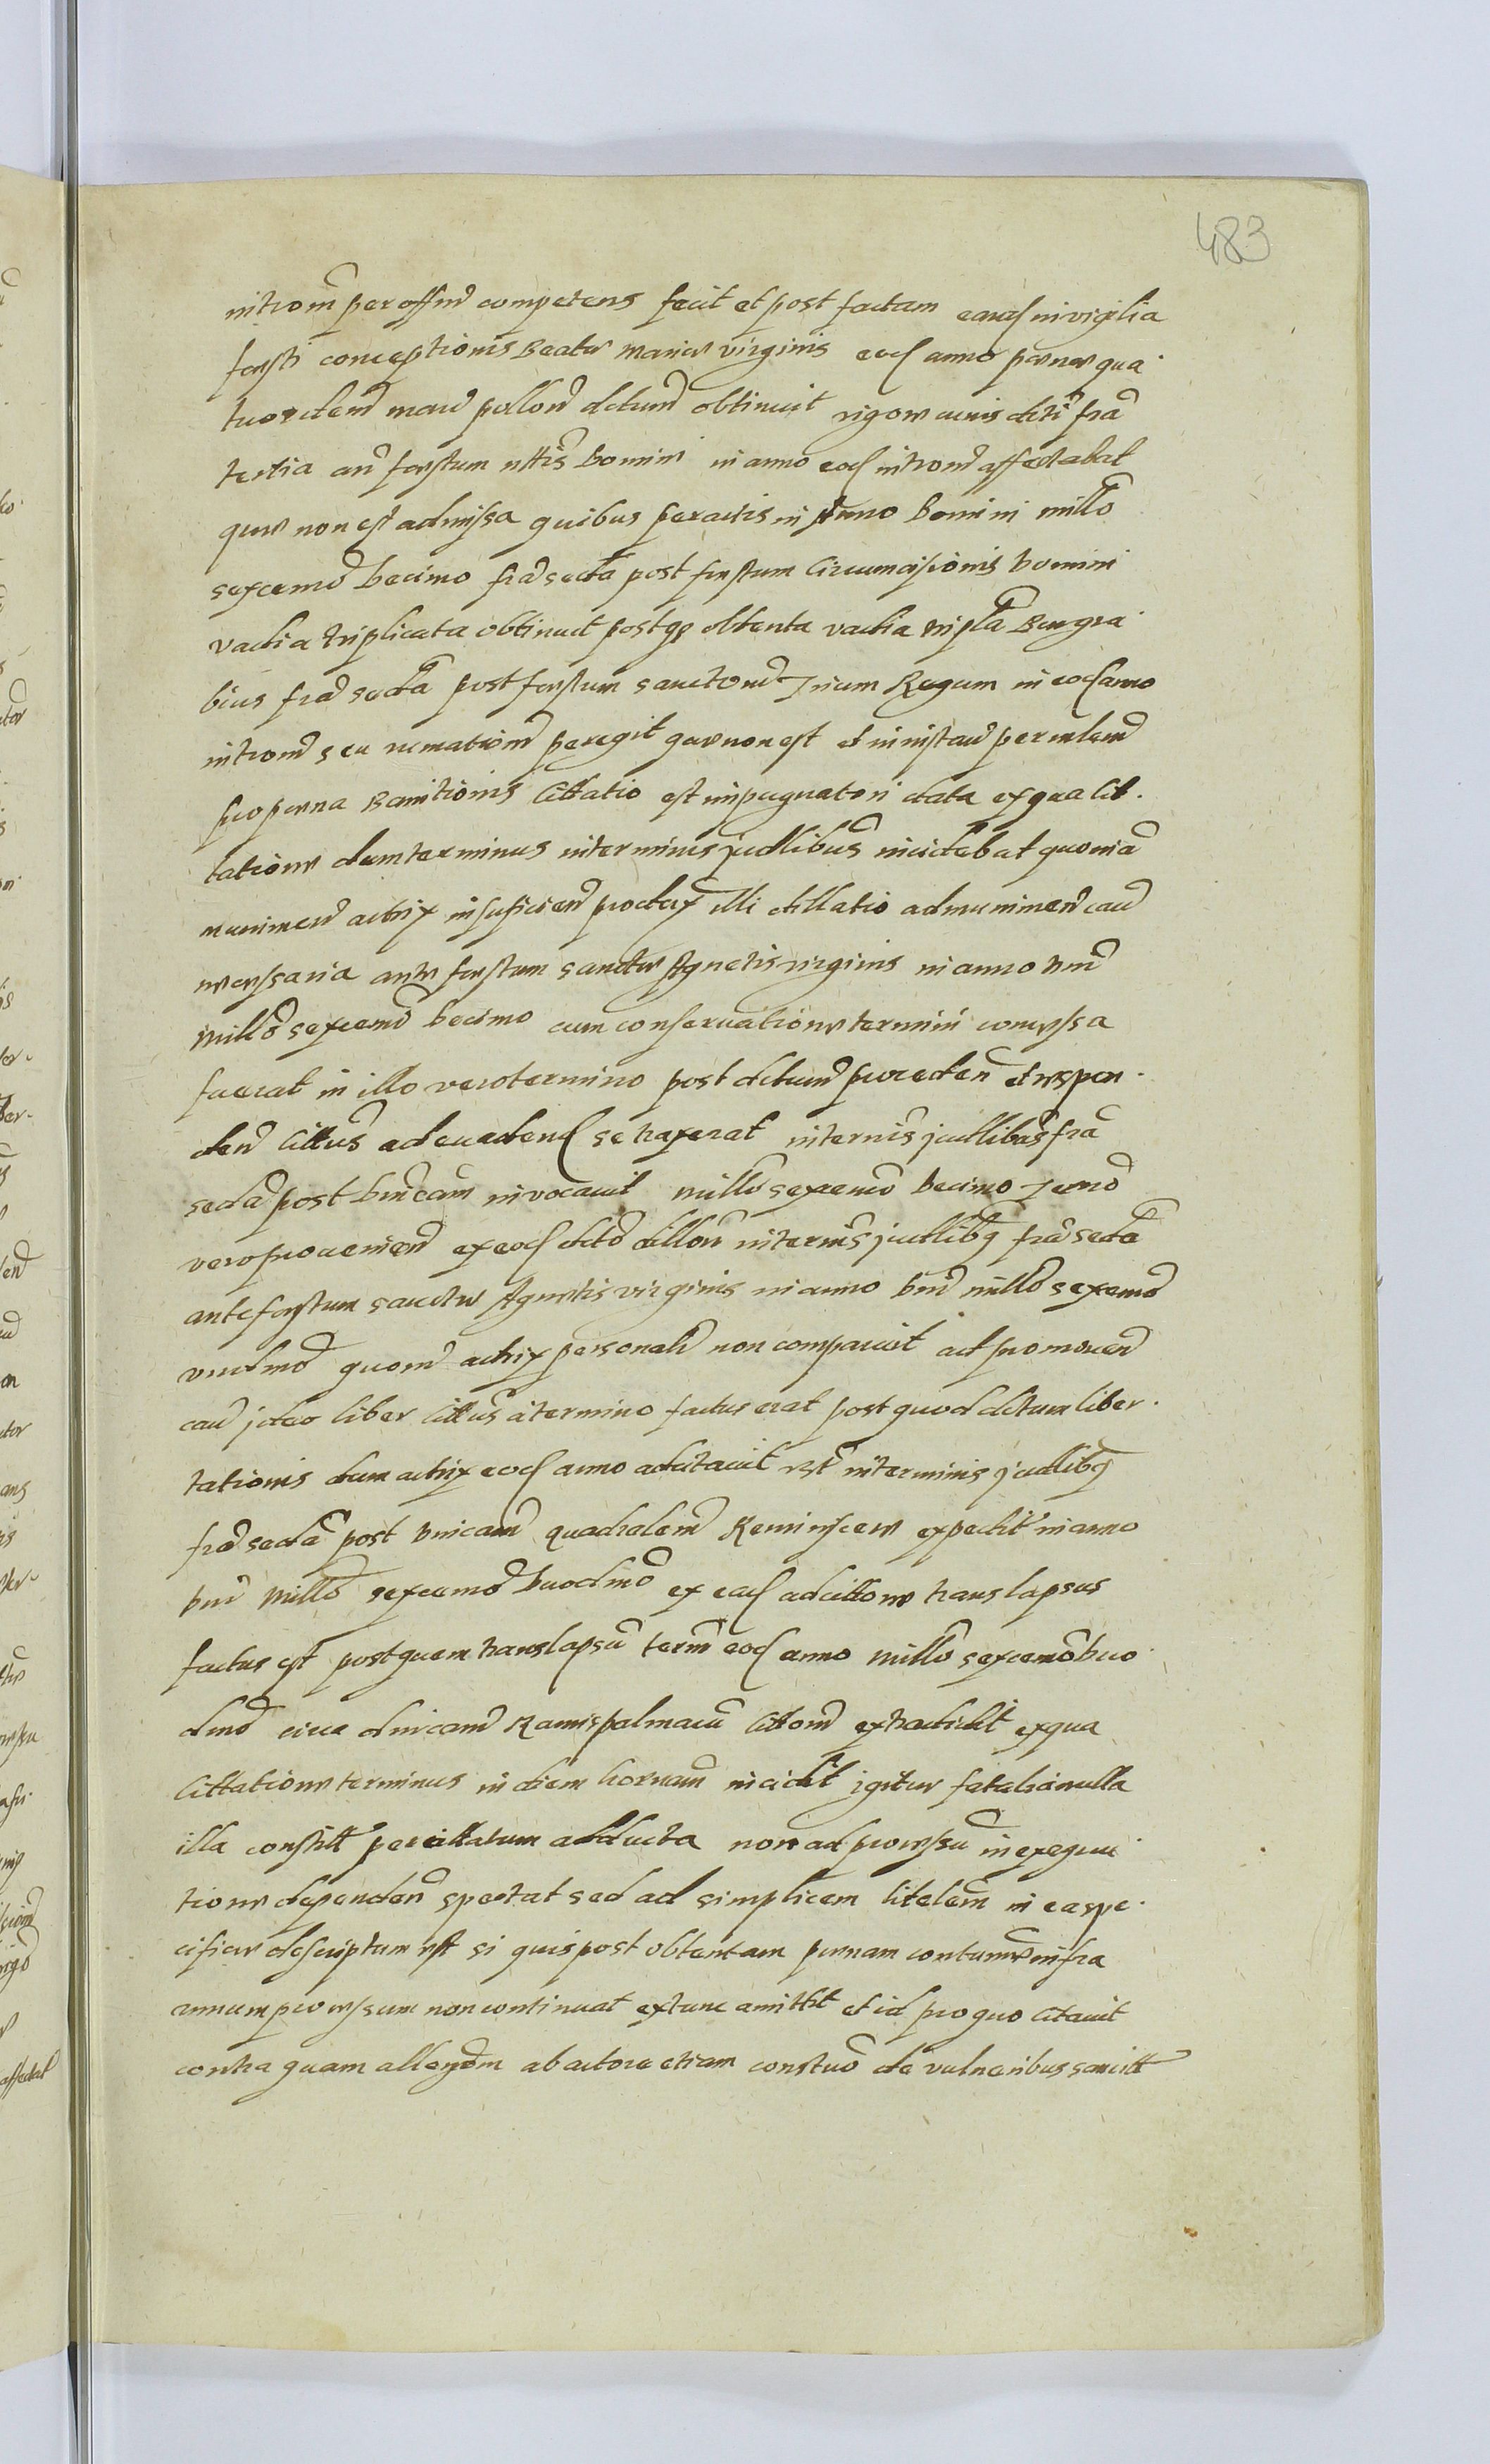 483
nitrom per offm competens fecit et post factam eand in vigilia
festi conceptionis Beatae Mariae virginis eod anno paenae qua
tuordem marc pollon dctum obtinuit vigore cuius dcti fra
tertia an festum nttis Domini in anno eod introm affectabat
quae non est admissa quibus peractis in Anno Domini millo
sexcemo Decimo fra secda post festum Circumcisionis Domini
vadia triplicata obtinuit post qo obtenta vadia tripla Bungra
bius fra secda post festum sanctorum Trium Regum in eod anno
introm seu rumationem peregit quae non est et in instan per eulem
pro paena Banitionis Cittatio est impugnatori data ex qua Cit
tatione dum terminus in terminis judlibus incidebat quoniam
munimen actrix insuficien produx illi dillatio ad munimen cau
necessaria ante festum sanctae Agnetis virginis in anno Dni
millo sexcemo Decimo cum conservatione termini concessa
fuerat in illo vero termino post dctum proceden et respon
den Cittus ad evadend se traxerat in ternis judlibus fra
secda post Dnicam invocavit millo sexcemo Decimo Termo
vero provenien ex eod dcto dillon in ternis judlibq fra secda
ante festum sanctae Agnetis virginis in anno Dni millo sexcemo
undmo quom actrix personalr non comparuit ad promoven
cau jdeo liber Cittus a termino factus erat post quod dctum liber
tationis dum actrix eod anno adcitavit est in terminis judlibq
fra secda post Dnicam quadralem Reminscere expedit in anno
Dni Millo sexcemo Duodmo ex ead adcittone translapsus
factus est post quem translapsu term eod anno millo sexcemo Duo
dmo circa dnicam Ramispalmaru Cittom extradidit ex qua
Cittatione terminus in diem hornam incidit igitur fatalia nulla
illa constitt per cittatum adducta non ad processu in exequu
tione dependen spectat sed ad simplicem litelem in ea spe
cifice descriptum est si quis post obtentam paenam contum infra
annum processum non continuat extunc amittit et id pro quo citavit
contra quam allegom ab actore etiam constuo de vulneribus sancitt